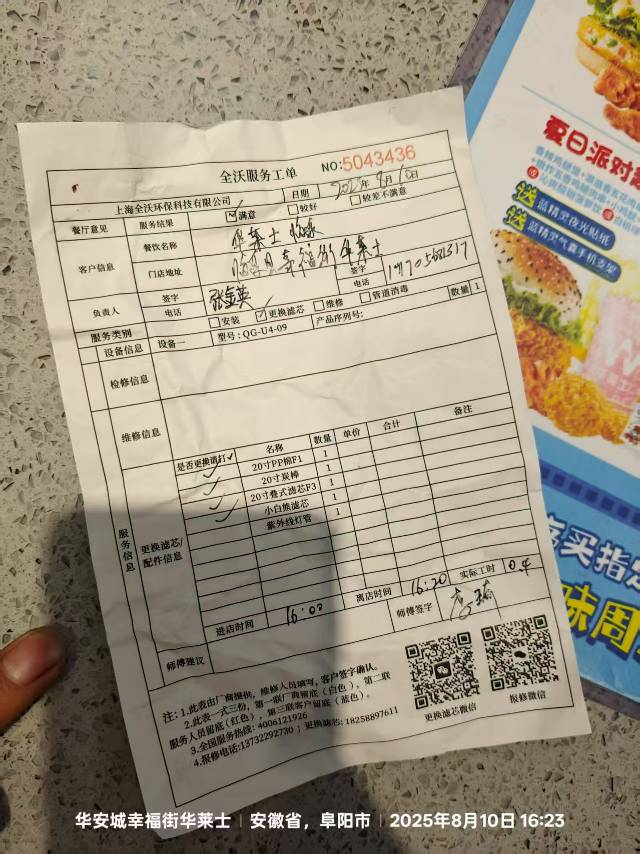 全沃服务工单
NO:5043436
上海全沃环保科技有限公司
日期
2025年8月10日
餐厅意见 服务结果 ☑满意 □较好 □较差不满意
客户信息 餐饮名称 华莱士
门店地址 幸福街华莱士
负责人 签字 张金英 签字
电话 电话
服务类别 □安装 ☑更换滤芯 □维修 □管道消毒
设备信息 设备一 型号:QG-U4-09 产品序列号: 数量 1
检修信息
维修信息
服务信息
更换滤芯/配件信息
是否更换请打✓ 名称 数量 单价 合计 备注
✓ 20寸PP棉F1 1
✓ 20寸炭棒 1
✓ 20寸叠式滤芯F3 1
小白熊滤芯 1
紫外线灯管 1
进店时间 16:00 离店时间 16:20 实际工时 0.4
师傅建议 师傅签字
注:1.此表由厂商提供,维修人员填写,客户签字确认。
2.此表一式三份,第一联厂商留底(白色),第二联
服务人员留底(红色),第三联客户留底(蓝色)。
3.全国服务热线:4006121926
4.报修电话:13732292730 ; 更换滤芯:18258897611
更换滤芯微信 报修微信
夏日派对
送 蓝精灵夜光贴纸
送 蓝精灵气囊手机支架
买指定
味周
华安城幸福街华莱士 | 安徽省,阜阳市 | 2025年8月10日 16:23